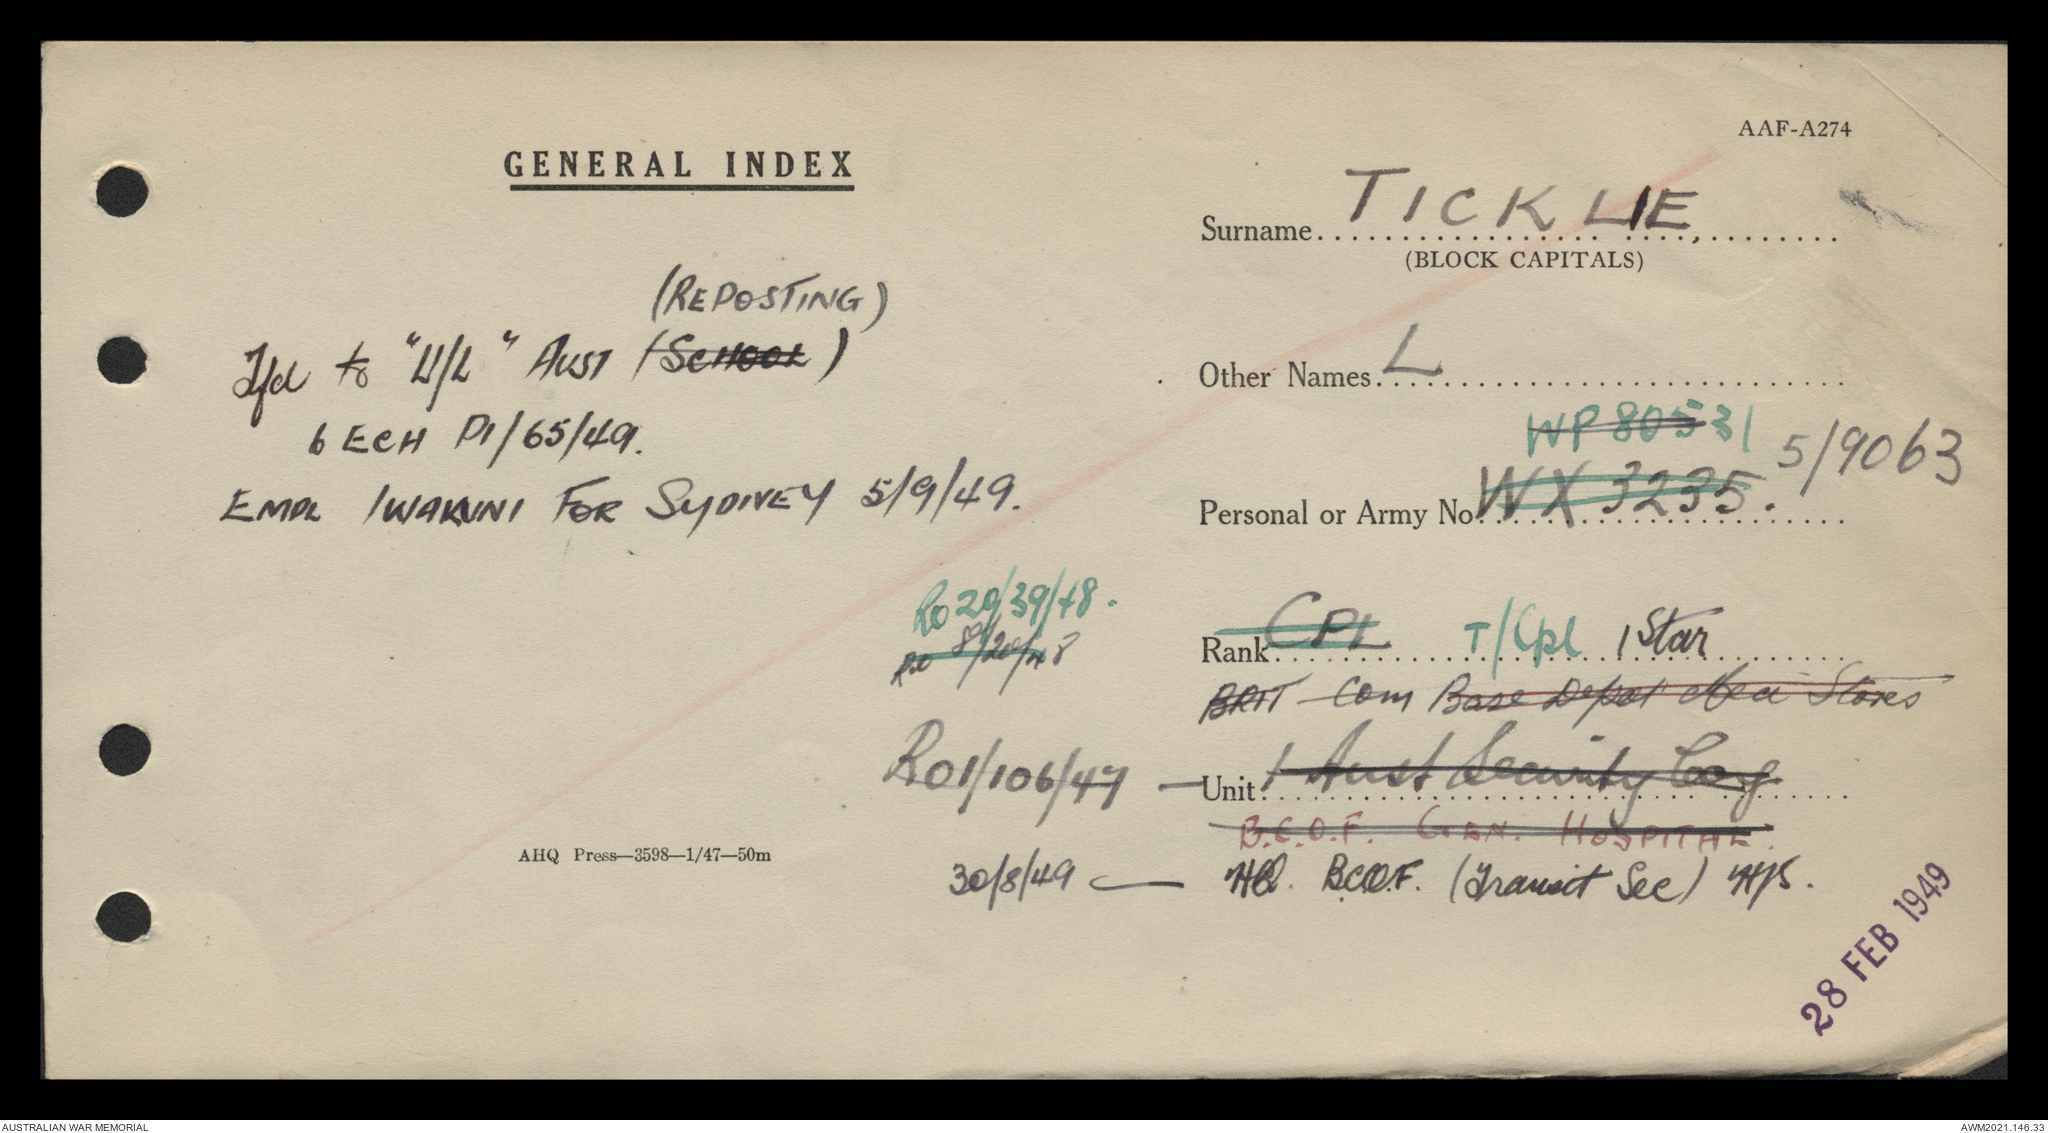 AAF-A274
GENERAL INDEX
Surname TICKLIE
(BLOCK CAPITALS)
(REPOSTING)
Tfd to "U/L" AUST (SCHOOL)
Other Names L
6 ECH P1/65/49.
WP 80531
5/9063
Personal or Army No WX 3235.
EMPL IWAKUNI FOR SYDNEY 5/9/49.
Ro 29/39/48.
Ro 8/20/48
Rank CPL T/Cpl 1 Star
BRIT Com Base Depot Med Stores
Ro1/106/47 — Unit 1 Aust Security Coy
B.C.O.F. GEN. HOSPITAL.
AHQ Press—3598—1/47—50m
30/8/49 — HQ. BCOF. (Transit Sec)
28 FEB 1949
AUSTRALIAN WAR MEMORIAL
AWM2021.146.33